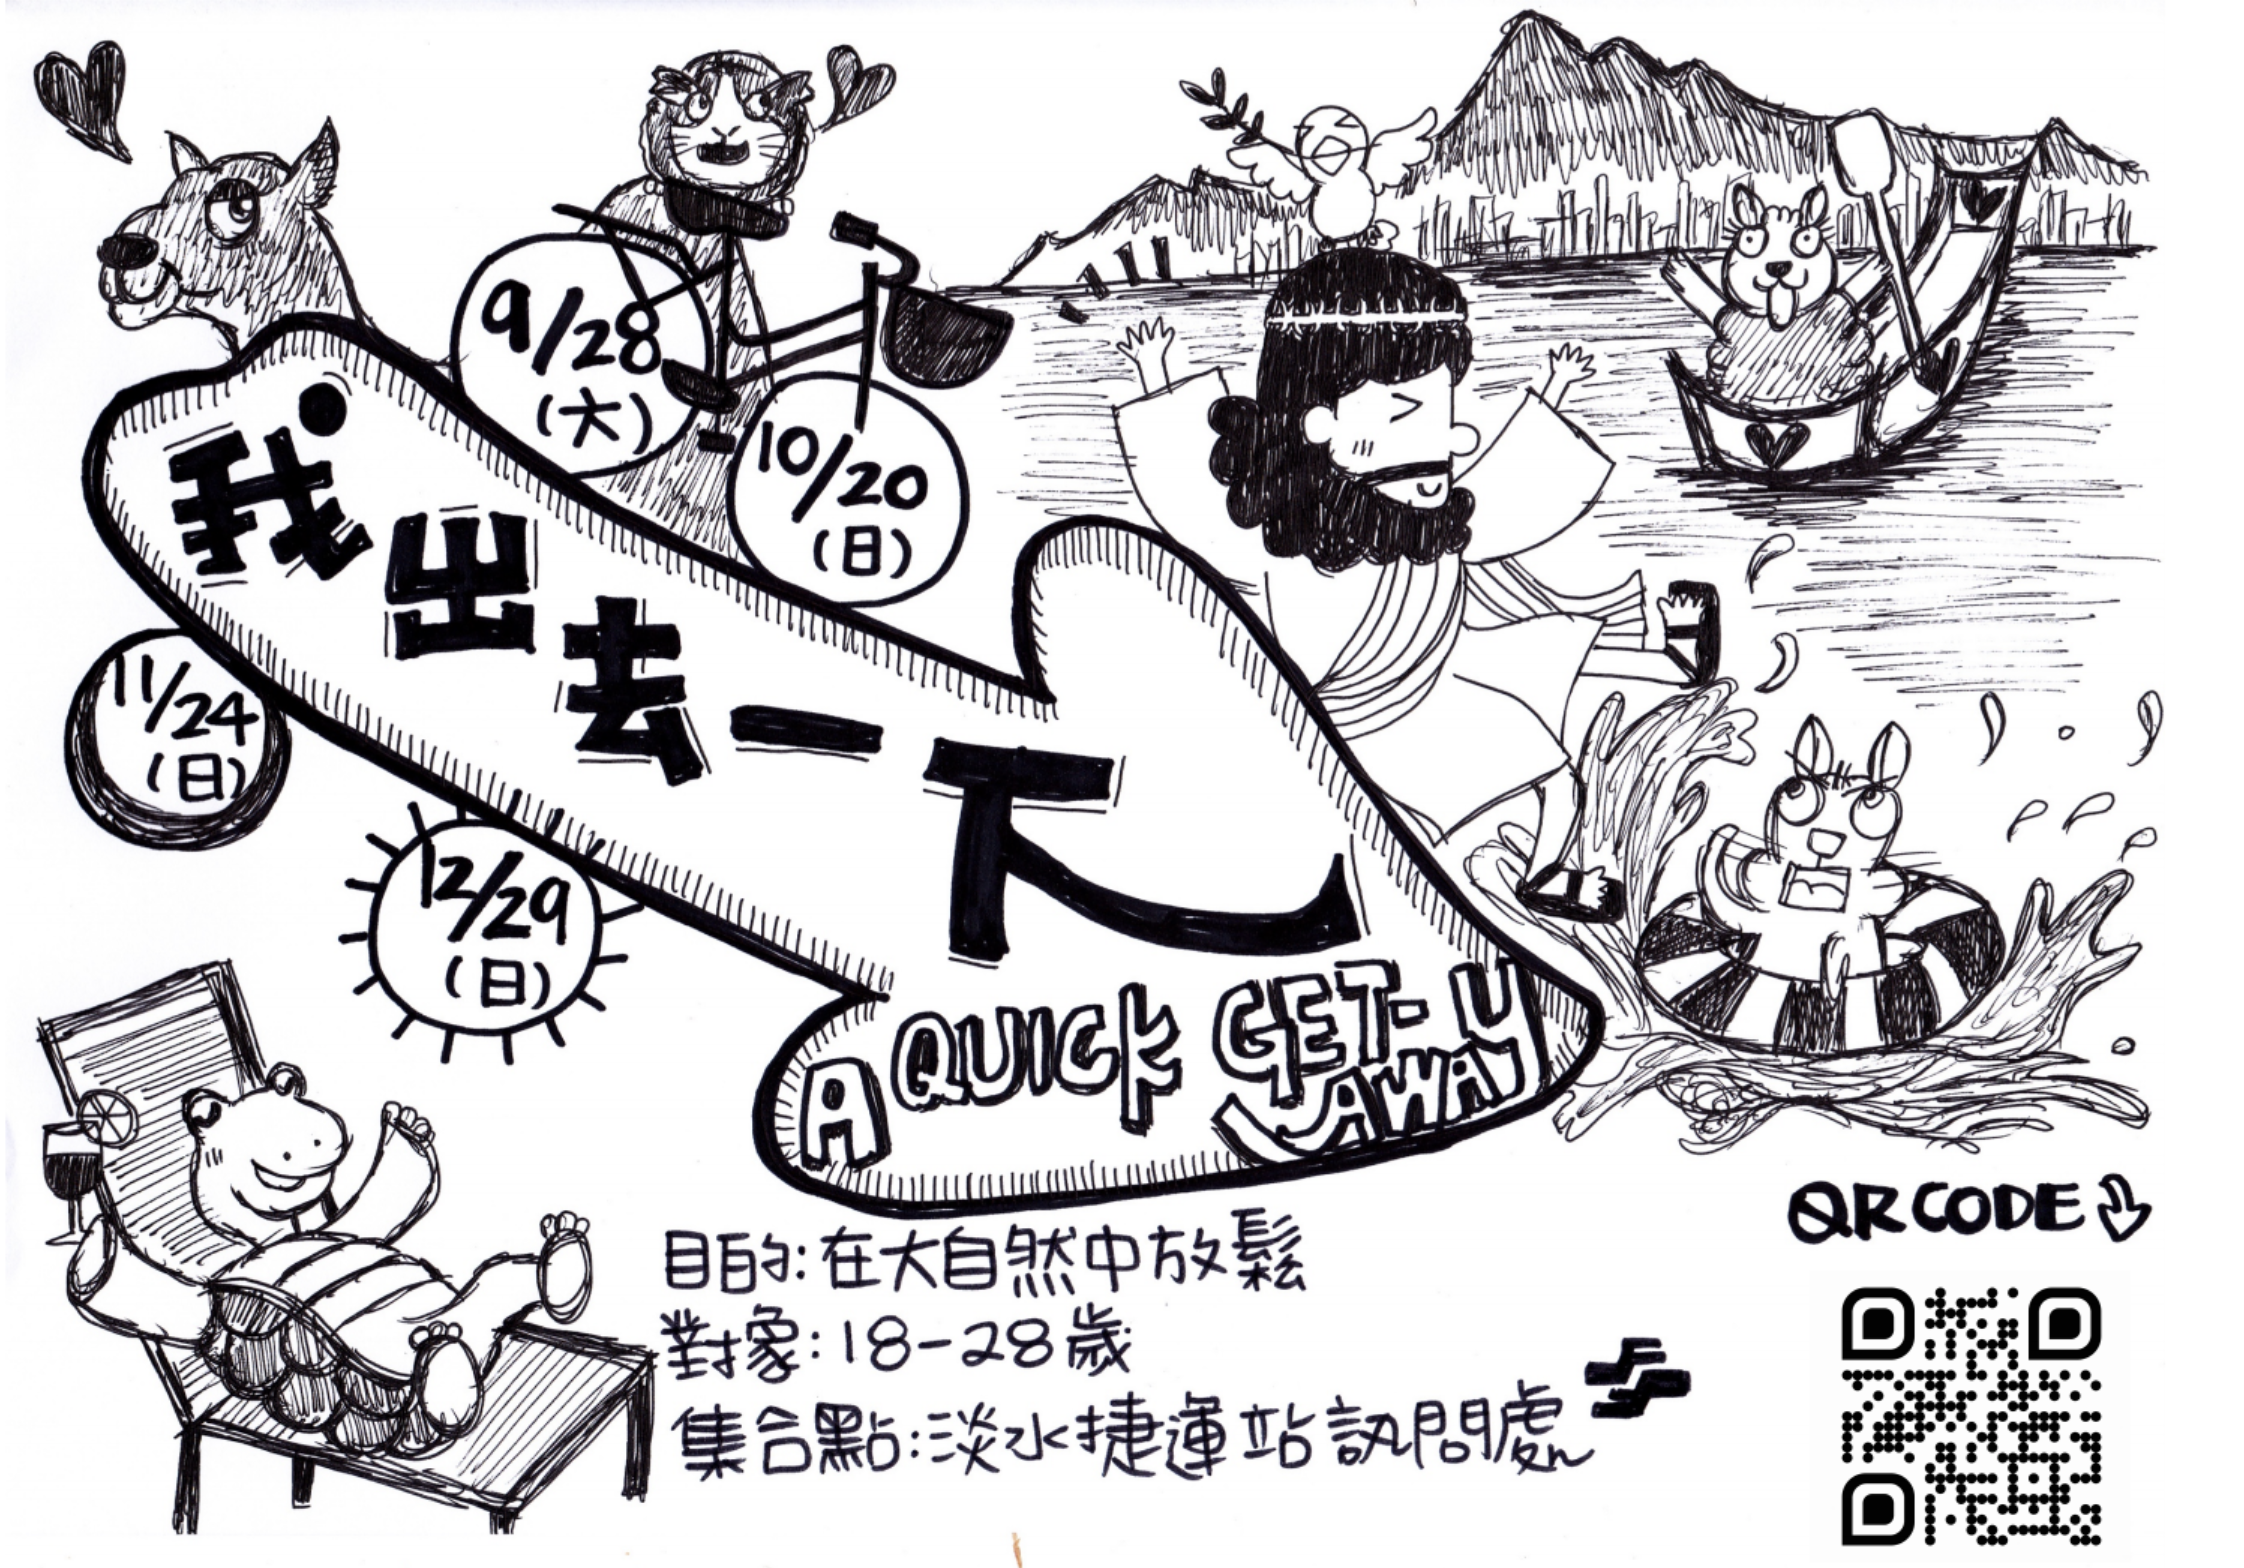 9/28
(六)
10/20
(日)
我出去一下
11/24
(日)
12/29
(日)
A QUICK GET-
AWAY
目的:在大自然中放鬆
對象:18-28歲
集合點:淡水捷運站訊問處
QR CODE